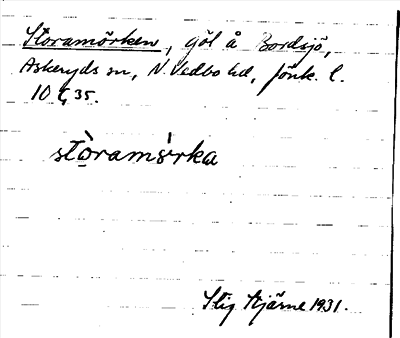 Storamörken, göl å Bordsjö,
Askeryds sn, N. Vedbo hd, Jönk. l.
10 ξ 35.
stò̤ramö̀rka
Stig Hjärne 1931.